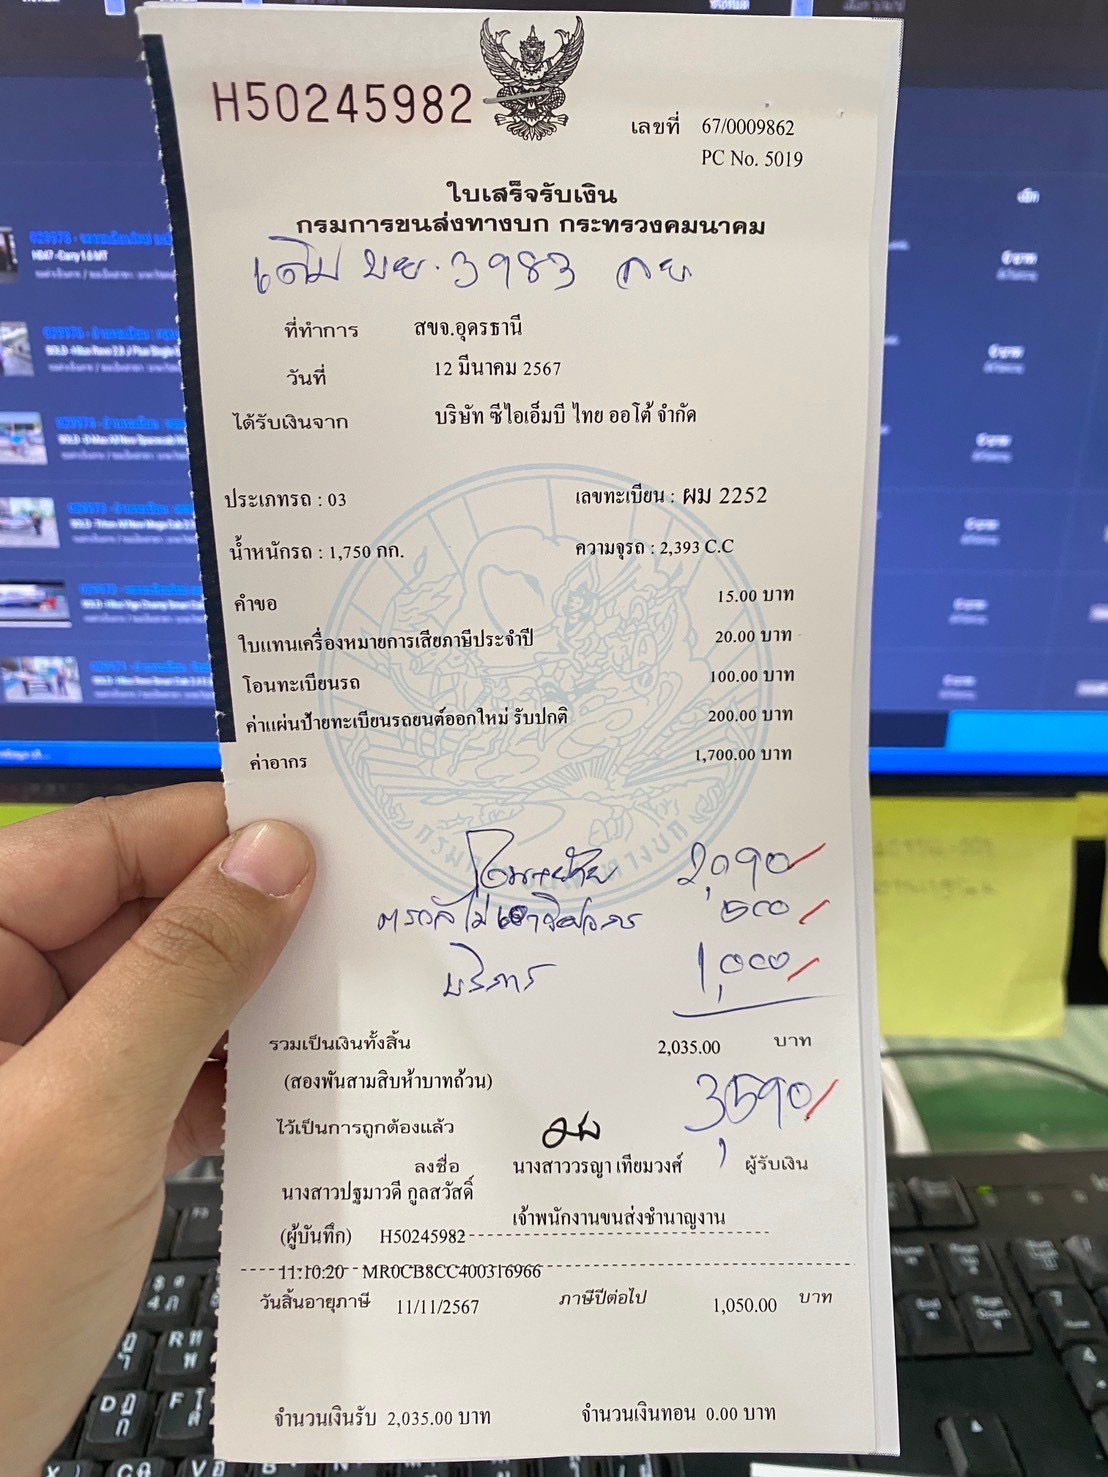 H50245982
เลขที่ 67/0009862
PC No. 5019
ใบเสร็จรับเงิน
กรมการขนส่งทางบก กระทรวงคมนาคม
เดิม บย. 3983 กย
ที่ทำการ สขจ.อุดรธานี
วันที่ 12 มีนาคม 2567
ได้รับเงินจาก บริษัท ซีไอเอ็มบี ไทย ออโต้ จำกัด
ประเภทรถ : 03 เลขทะเบียน : ผม 2252
น้ำหนักรถ : 1,750 กก. ความจุรถ : 2,393 C.C
คำขอ 15.00 บาท
ใบแทนเครื่องหมายการเสียภาษีประจำปี 20.00 บาท
โอนทะเบียนรถ 100.00 บาท
ค่าแผ่นป้ายทะเบียนรถยนต์ออกใหม่ รับปกติ 200.00 บาท
ค่าอากร 1,700.00 บาท
2,090
500
บริการ 1,000
รวมเป็นเงินทั้งสิ้น 2,035.00 บาท
(สองพันสามสิบห้าบาทถ้วน)
3,590
ไว้เป็นการถูกต้องแล้ว
ลงชื่อ นางสาววรญา เทียมวงศ์ ผู้รับเงิน
นางสาวปฐมาวดี กูลสวัสดิ์
เจ้าพนักงานขนส่งชำนาญงาน
(ผู้บันทึก) H50245982
11:10:20 MR0CB8CC400316966
วันสิ้นอายุภาษี 11/11/2567 ภาษีปีต่อไป 1,050.00 บาท
จำนวนเงินรับ 2,035.00 บาท จำนวนเงินทอน 0.00 บาท